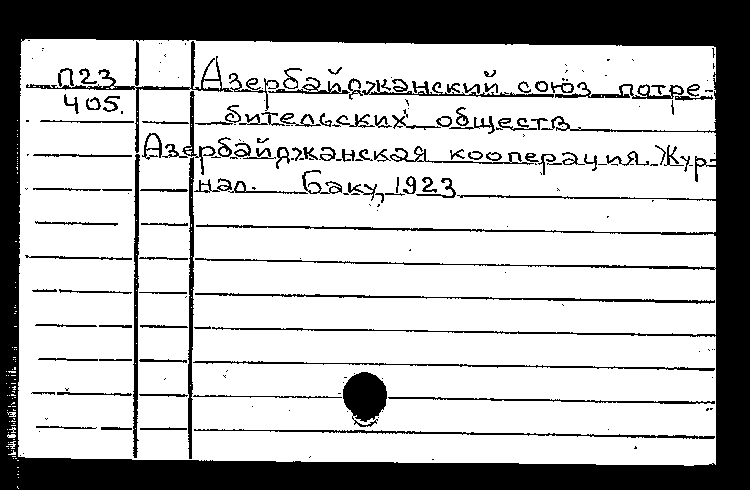 П23 Азербайджанский союз потре-
405. бительских обществ.
Азербайджанская кооперация. Жур-
нал. Баку, 1923